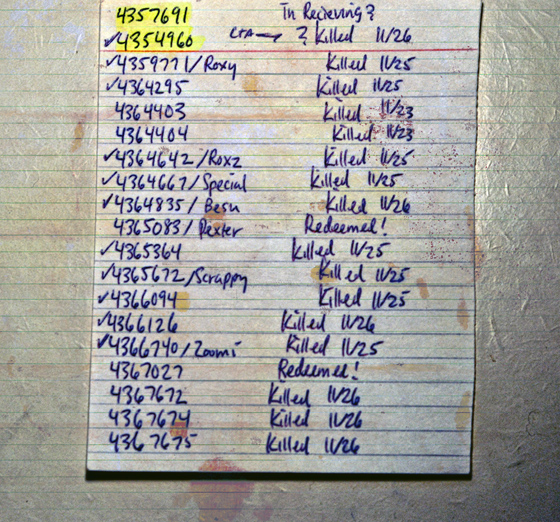 4357691 In Recieving?
✓4354960 LTA → ? Killed 11/26
✓4359771/Roxy Killed 11/25
✓4364295 Killed 11/25
4364403 Killed 11/23
4364404 Killed 11/23
✓4364642/Roxz Killed 11/25
✓4364667/Special Killed 11/25
✓4364835/Besu Killed 11/26
4365083/Dexter Redeemed!
✓4365364 Killed 11/25
✓4365672/Scrappy Killed 11/25
✓4366094 Killed 11/25
✓4366126 Killed 11/26
✓4366740/Zoomi Killed 11/25
4367027 Redeemed!
4367672 Killed 11/26
4367674 Killed 11/26
4367675 Killed 11/26